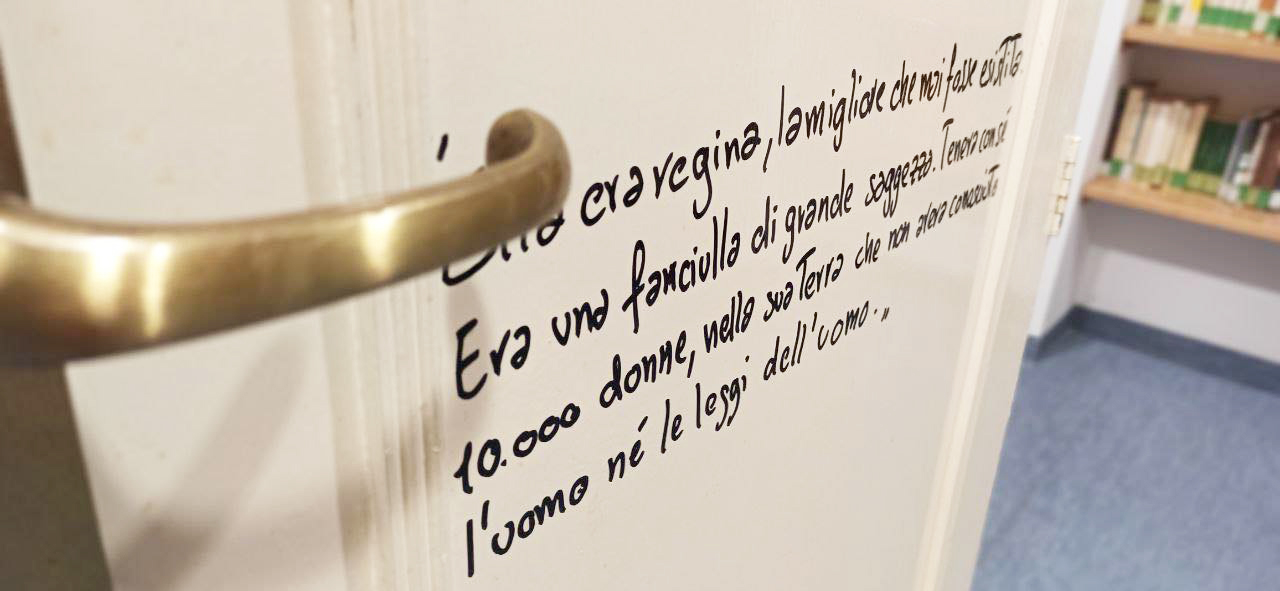 era regina, la migliore che mai fosse esistita.
Era una fanciulla di grande saggezza. Teneva con sé
10.000 donne, nella sua Terra che non aveva conosciuto
l'uomo né le leggi dell'uomo."